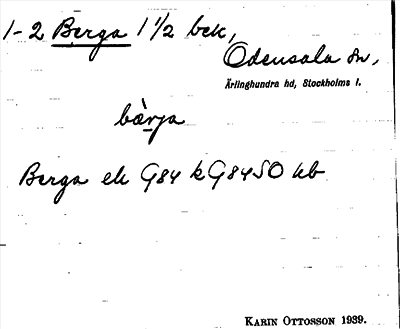 1-2 Berga 1 1/2 bek,
Odensala sn,
Ärlinghundra hd, Stockholms l.
bàrja
Berga ek G84 k G84SO kb
KARIN OTTOSSON 1939.